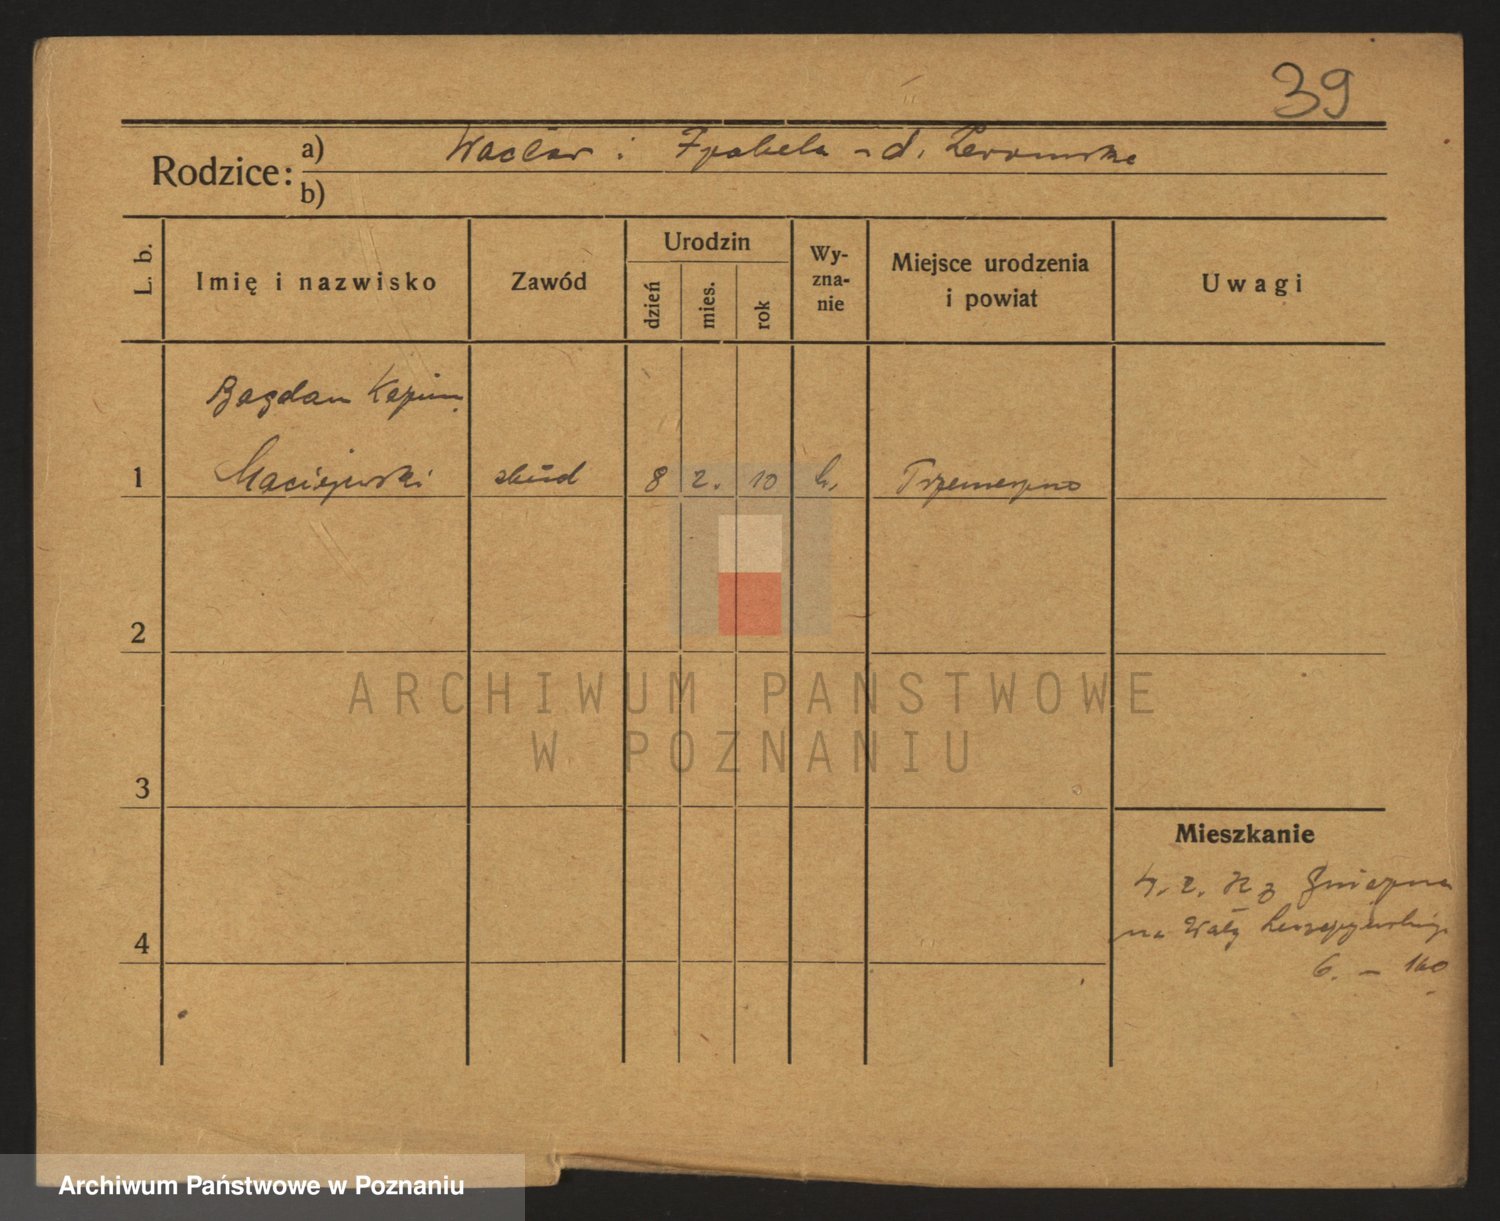 39
Rodzice:
a) Wacław i Izabela z d. Żeromska
b)
L. b.
Imię i nazwisko
Zawód
Urodzin
dzień
mies.
rok
Wy-
zna-
nie
Miejsce urodzenia
i powiat
Uwagi
Bogdan Kazim.
1 Maciejewski stud 8 2. 10 k. Trzemeszno
2
3
4
Mieszkanie
z Gniezna
na Wały
6. – 160
ARCHIWUM PAŃSTWOWE
W POZNANIU
Archiwum Państwowe w Poznaniu